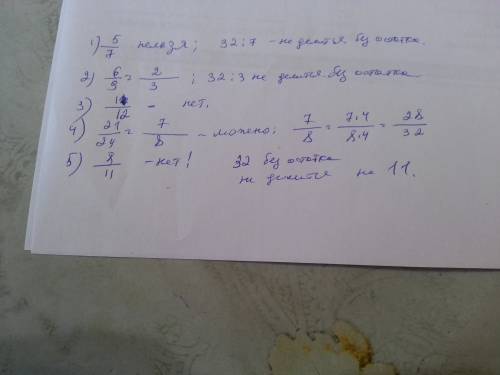 1) 5/7 нельзя; 32:7 - не делится без остатка.
2) 6/9 = 2/3; 32:3 не делится без остатка
3) 11/12 - нет.
4) 21/24 = 7/8 - можно; 7/8 = 7·4/8·4 = 28/32
5) 8/11 - нет! 32 без остатка
не делится на 11.